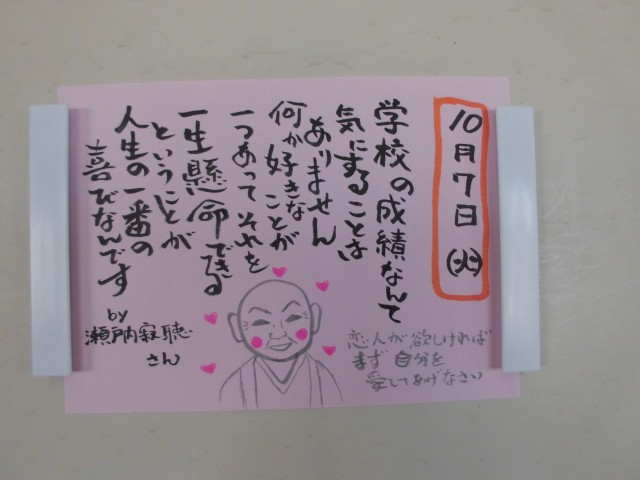 10月7日(火)
学校の成績なんて
気にすることは
ありません
何か好きな
ことが
一つあってそれを
一生懸命できる
ということが
人生の一番の
喜びなんです
by
瀬戸内寂聴
さん
恋人が欲しければ
まず自分を
愛してあげなさい